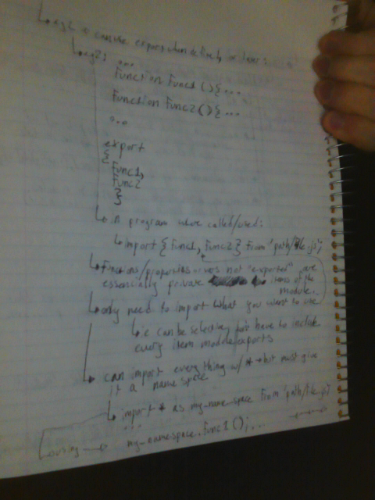 ↳ e.g.: ...
Function Func1 () { ...
Function Func2 () { ...
...
export
{
Func1,
Func2
}
↳ in program where called/used:
↳ import { Func1, Func2 } From "path/file.js";
↳ Functions/properties not "exported" are
essentially private of the
module.
↳ only need to import what you want to use
↳ i.e. can be selective, don't have to include
every item module exports
↳ can import everything w/ * but must give
it a name space
↳ import * as my_name_space From "path/file.js"
↳ using → my_namespace.Func1();...